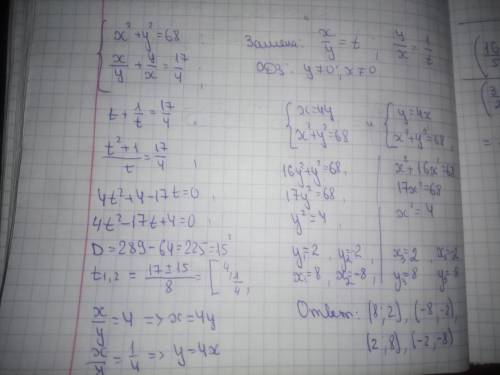 x² + y² = 68
x/y + y/x = 17/4
Замена: x/y = t ; y/x = 1/t
ОДЗ: y ≠ 0 ; x ≠ 0
t + 1/t = 17/4 ;
(t² + 1)/t = 17/4 ;
4t² + 4 - 17t = 0 ,
4t² - 17t + 4 = 0 ;
D = 289 - 64 = 225 = 15²
t₁,₂ = (17 ± 15)/8 = [ 4 ; 1/4 ;
x/y = 4 => x = 4y
x/y = 1/4 => y = 4x
{ x = 4y
x² + y² = 68
16y² + y² = 68 ,
17y² = 68 ,
y² = 4 ,
y₁ = 2 , y₂ = -2 ,
x₁ = 8 , x₂ = -8 ,
и
{ y = 4x
x² + y² = 68 ,
x² + 16x² = 68
17x² = 68
x² = 4
x₃ = 2 , x₄ = -2
y₃ = 8 y = -8
Ответ: (8; 2), (-8, -2),
(2, 8), (-2, -8)